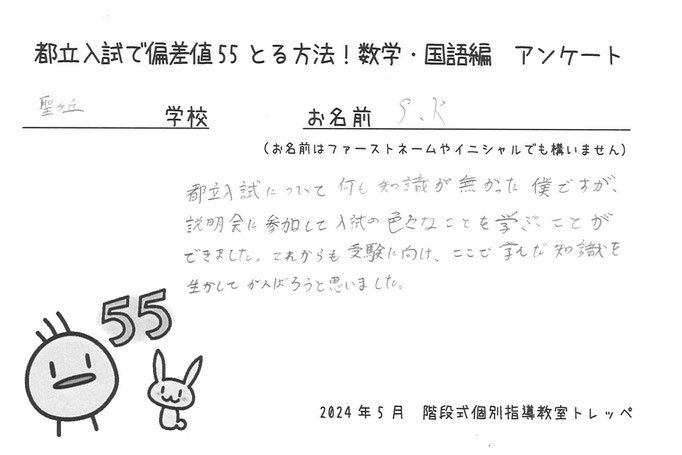 都立入試で偏差値55とる方法！数学・国語編　アンケート
聖ヶ丘　学校　お名前　S.K
（お名前はファーストネームやイニシャルでも構いません）
都立入試について何も知識が無かった僕ですが、
説明会に参加して入試の色々なことを学ぶことが
できました。これからも受験に向け、ここで学んだ知識を
生かしてがんばろうと思いました。
55
2024年5月　階段式個別指導教室トレッペ